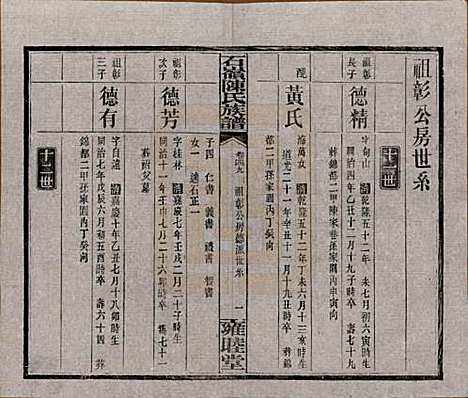 祖彰公房世系
十三世
祖彰
長子
德精
字甸山 清乾隆五十二年 未七月初六寅時生
同治四年乙丑十一月十九時卒 壽七十九
葬錦都二甲陳家巷孫家園丙中丙向
配
黃氏
海萬女 清乾隆五十二年丁未六月十三亥時生
道光二十一年辛丑十一月十九丑時卒 葬錦
都二甲孫家園內丁癸向
子四 仁書 義書 禮書 智書
女一 適石正一
石嶺陳氏族譜
祖彰公房德派世系
一
雍睦堂
祖彰
次子
德芳
字桂林 清嘉慶七年壬戌二月二十子時生
同治十一年壬申七月二十六卯時卒 壽七十一
葬雨父墓
祖彰
三子
德有
字自遠 清嘉慶十年乙丑七月十八戌時生
同治七年戊辰六月初五酉時卒 壽六十四 葬
錦都二甲孫家園內丁癸向
十三世